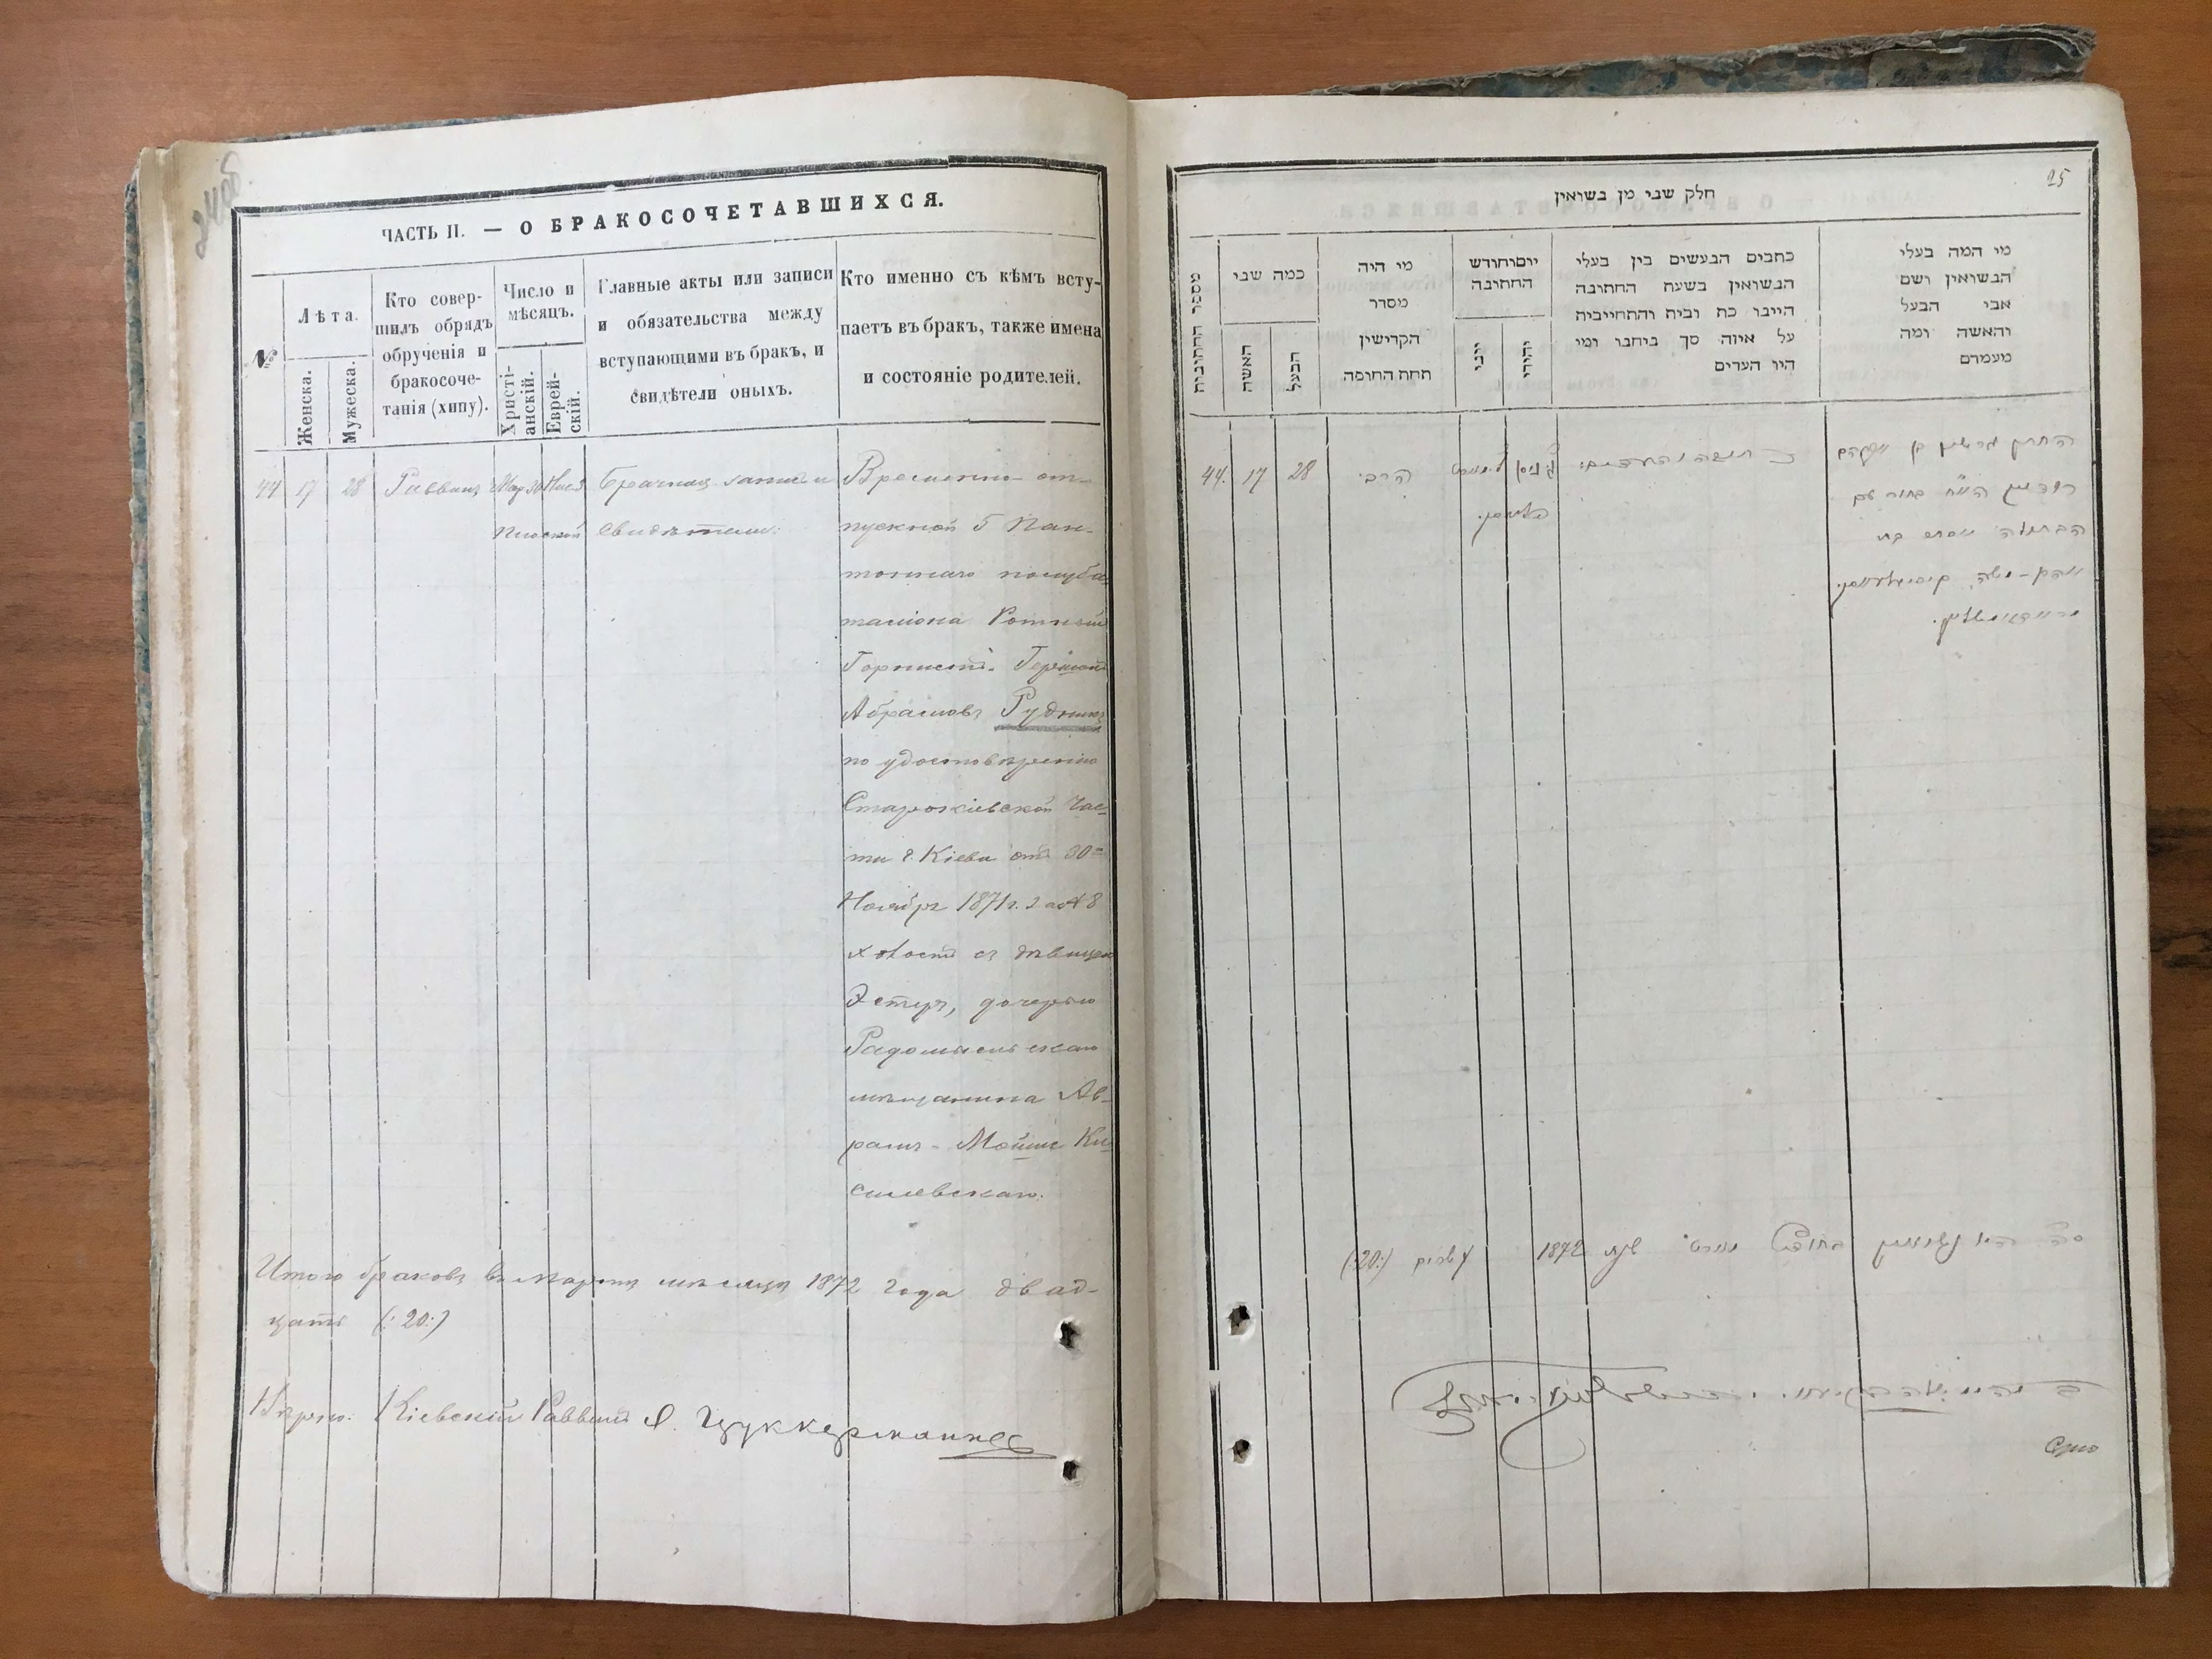 24об.
ЧАСТЬ II. — О БРАКОСОЧЕТАВШИХСЯ.
№
Лѣта.
Женска.
Мужеска.
Кто совер-
шилъ обрядъ
обрученія и
бракосоче-
танія (хипу).
Число и
мѣсяцъ.
Христі-
анскій.
Еврей-
скій.
Главные акты или записи
и обязательства между
вступающими въ бракъ, и
свидѣтели оныхъ.
Кто именно съ кѣмъ всту-
паетъ въ бракъ, также имена
и состояніе родителей.
44 17 28 Раввинъ Мар 30 Нис 3
Брачная запись и
свидѣтели:
Временно от-
пускной 5 Пон-
тоннаго полуба-
таліона Ротный
Горнистъ Гершонъ
Абрамовъ Рудникъ
по удостовѣренію
Старокіевской Час-
ти г. Кіева отъ 30
Ноября 1871 г. за № 8
холостъ съ дѣвицею
Эстеръ, дочерью
Радомысльскаго
мѣщанина Ав-
рамъ - Мойше Ки-
силевскаго.
Итого браковъ въ мартѣ мѣсяцѣ 1872 года двад-
цать (: 20:)
Вѣрно: Кіевскій Раввинъ Цуккерманъ
25
חלק שני מן נשואין
מספר החתונות
כמה שני
האשה
הבעל
מי היה
מסדר
הקדישין
תחת החופה
יום וחודש
החתונה
יוני
יהודי
כתבים הנעשים בין בעלי
הנשואין בשעת החתונה
היינו כת וביח והתחייביה
על איזה סך ביחבו ומי
היו העדים
מי המה בעלי
הנשואין ושם
אבי הבעל
והאשה ומה
מעמדם
44. 17 28 הרב
ניסן
החתן גרשון בן אברהם
הבתולה אסתר בת
אברהם-משה קיסילעווסקי
סה״כ היו נשואין בחודש מארט שנת 1872 עשרים (:20:)